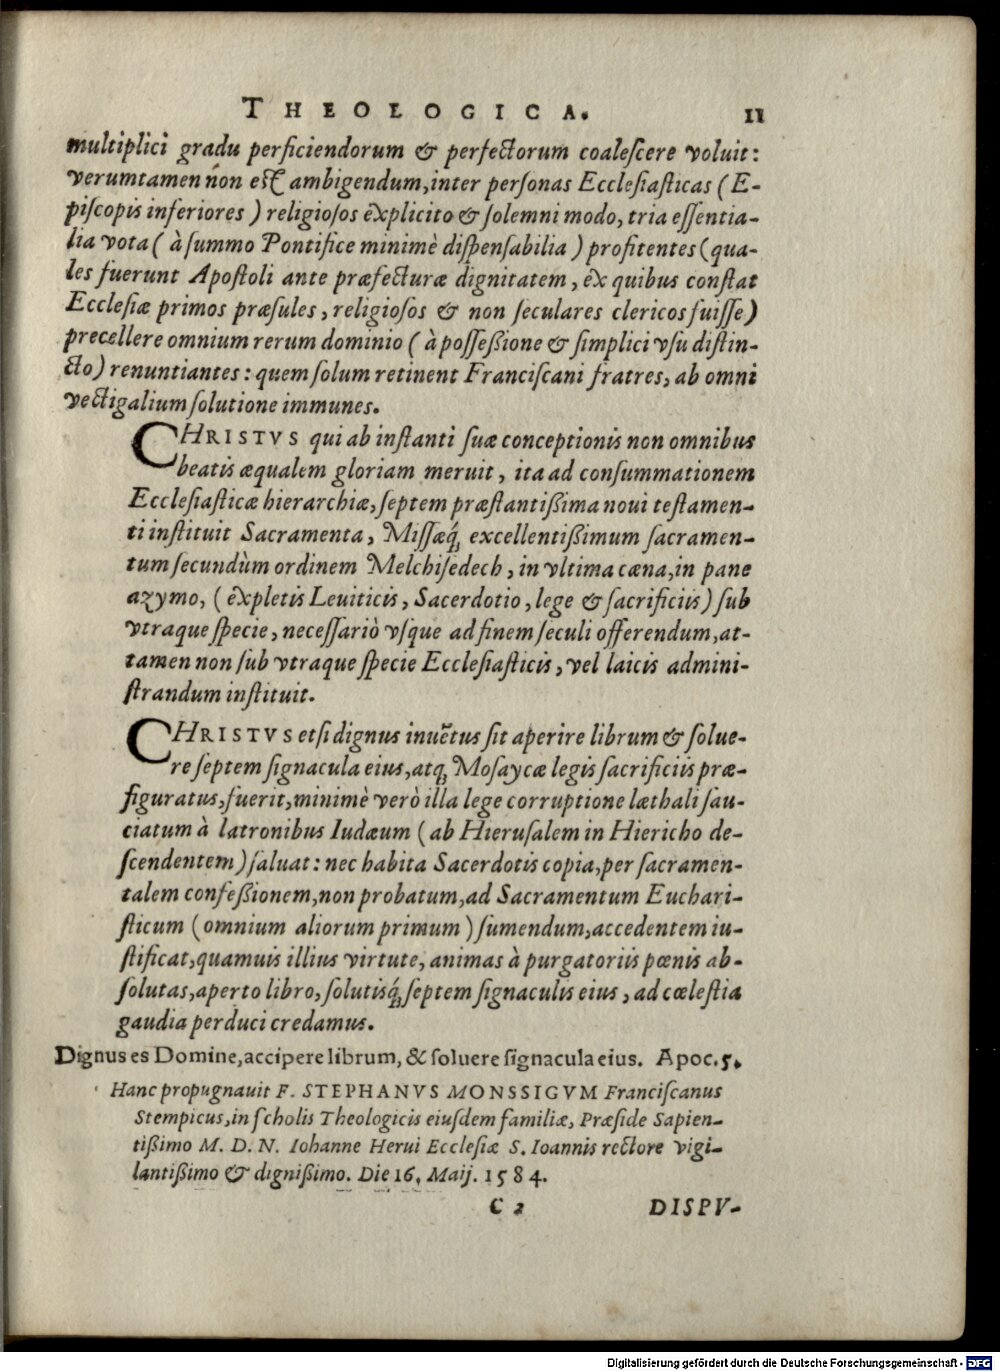 THEOLOGICA. 11
multiplici gradu perficiendorum & perfectorum coalescere voluit:
verumtamen non est ambigendum, inter personas Ecclesiasticas (E-
piscopis inferiores) religiosos explicito & solemni modo, tria essentia-
lia vota (à summo Pontifice minimè dispensabilia) profitentes (qua-
les fuerunt Apostoli ante præfecturæ dignitatem, ex quibus constat
Ecclesiæ primos præsules, religiosos & non seculares clericos fuisse)
precellere omnium rerum dominio (à possessione & simplici vsu distin-
cto) renuntiantes: quem solum retinent Franciscani fratres, ab omni
vectigalium solutione immunes.
CHRISTVS qui ab instanti suæ conceptionis non omnibus
beatis æqualem gloriam meruit, ita ad consummationem
Ecclesiasticæ hierarchiæ, septem præstantissima noui testamen-
ti instituit Sacramenta, Missæq́; excellentissimum sacramen-
tum secundùm ordinem Melchisedech, in vltima cæna, in pane
azymo, (expletis Leuiticis, Sacerdotio, lege & sacrificiis) sub
vtraque specie, necessariò vsque ad finem seculi offerendum, at-
tamen non sub vtraque specie Ecclesiasticis, vel laicis admini-
strandum instituit.
CHRISTVS etsi dignus inuẽtus sit aperire librum & solue-
re septem signacula eius, atq; Mosaycæ legis sacrificiis præ-
figuratus, fuerit, minimè verò illa lege corruptione læthali sau-
ciatum à latronibus Iudæum (ab Hierusalem in Hiericho de-
scendentem) saluat: nec habita Sacerdotis copia, per sacramen-
talem confessionem, non probatum, ad Sacramentum Euchari-
sticum (omnium aliorum primum) sumendum, accedentem iu-
stificat, quamuis illius virtute, animas à purgatoriis pœnis ab-
solutas, aperto libro, solutisq́; septem signaculis eius, ad cœlestia
gaudia perduci credamus.
Dignus es Domine, accipere librum, & soluere signacula eius. Apoc. 5.
Hanc propugnauit F. STEPHANVS MONSSIGVM Franciscanus
Stempicus, in scholis Theologicis eiusdem familiæ, Præside Sapien-
tissimo M. D. N. Iohanne Herui Ecclesiæ S. Ioannis rectore vigi-
lantissimo & dignissimo. Die 16. Maij. 1584.
C 2 DISPV-
Digitalisierung gefördert durch die Deutsche Forschungsgemeinschaft - DFG